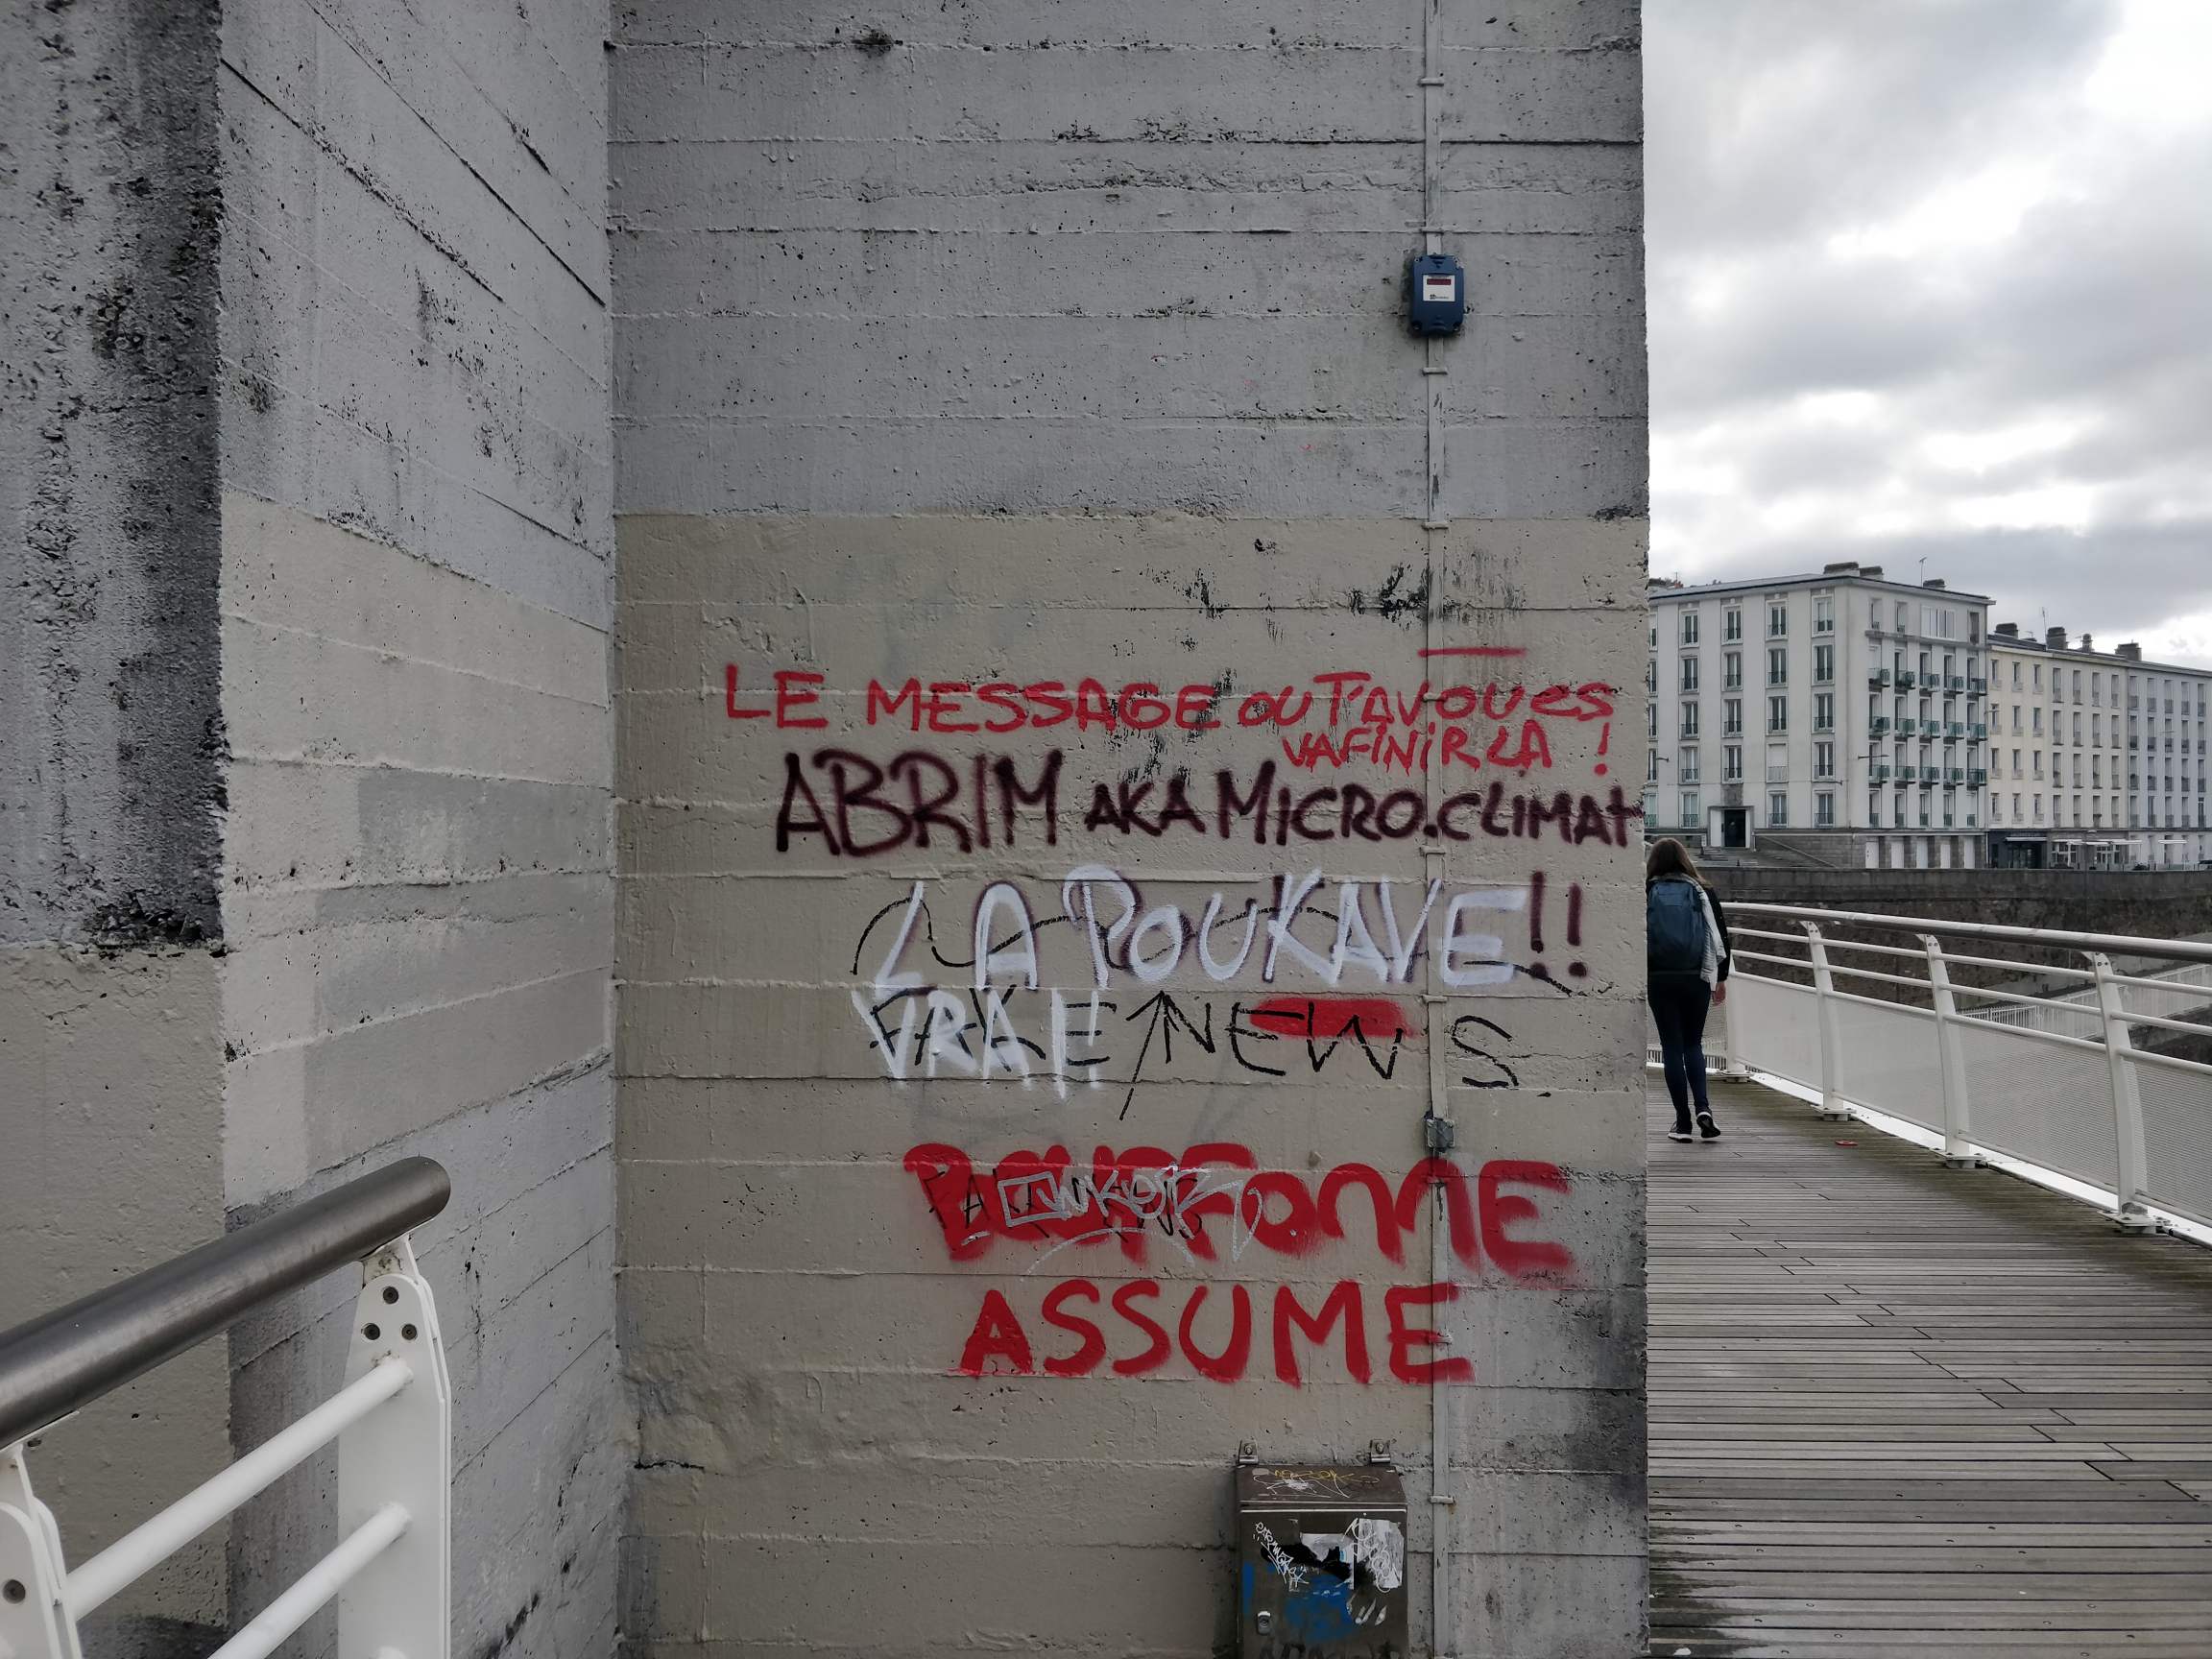 LE MESSAGE OU T'AVOUES
VAFINIR LA !
ABRIM AKA MICRO.CLIMAT
LA POUKAVE!!
FAKE NEWS
VRAI!
BOUFFONNE
ASSUME